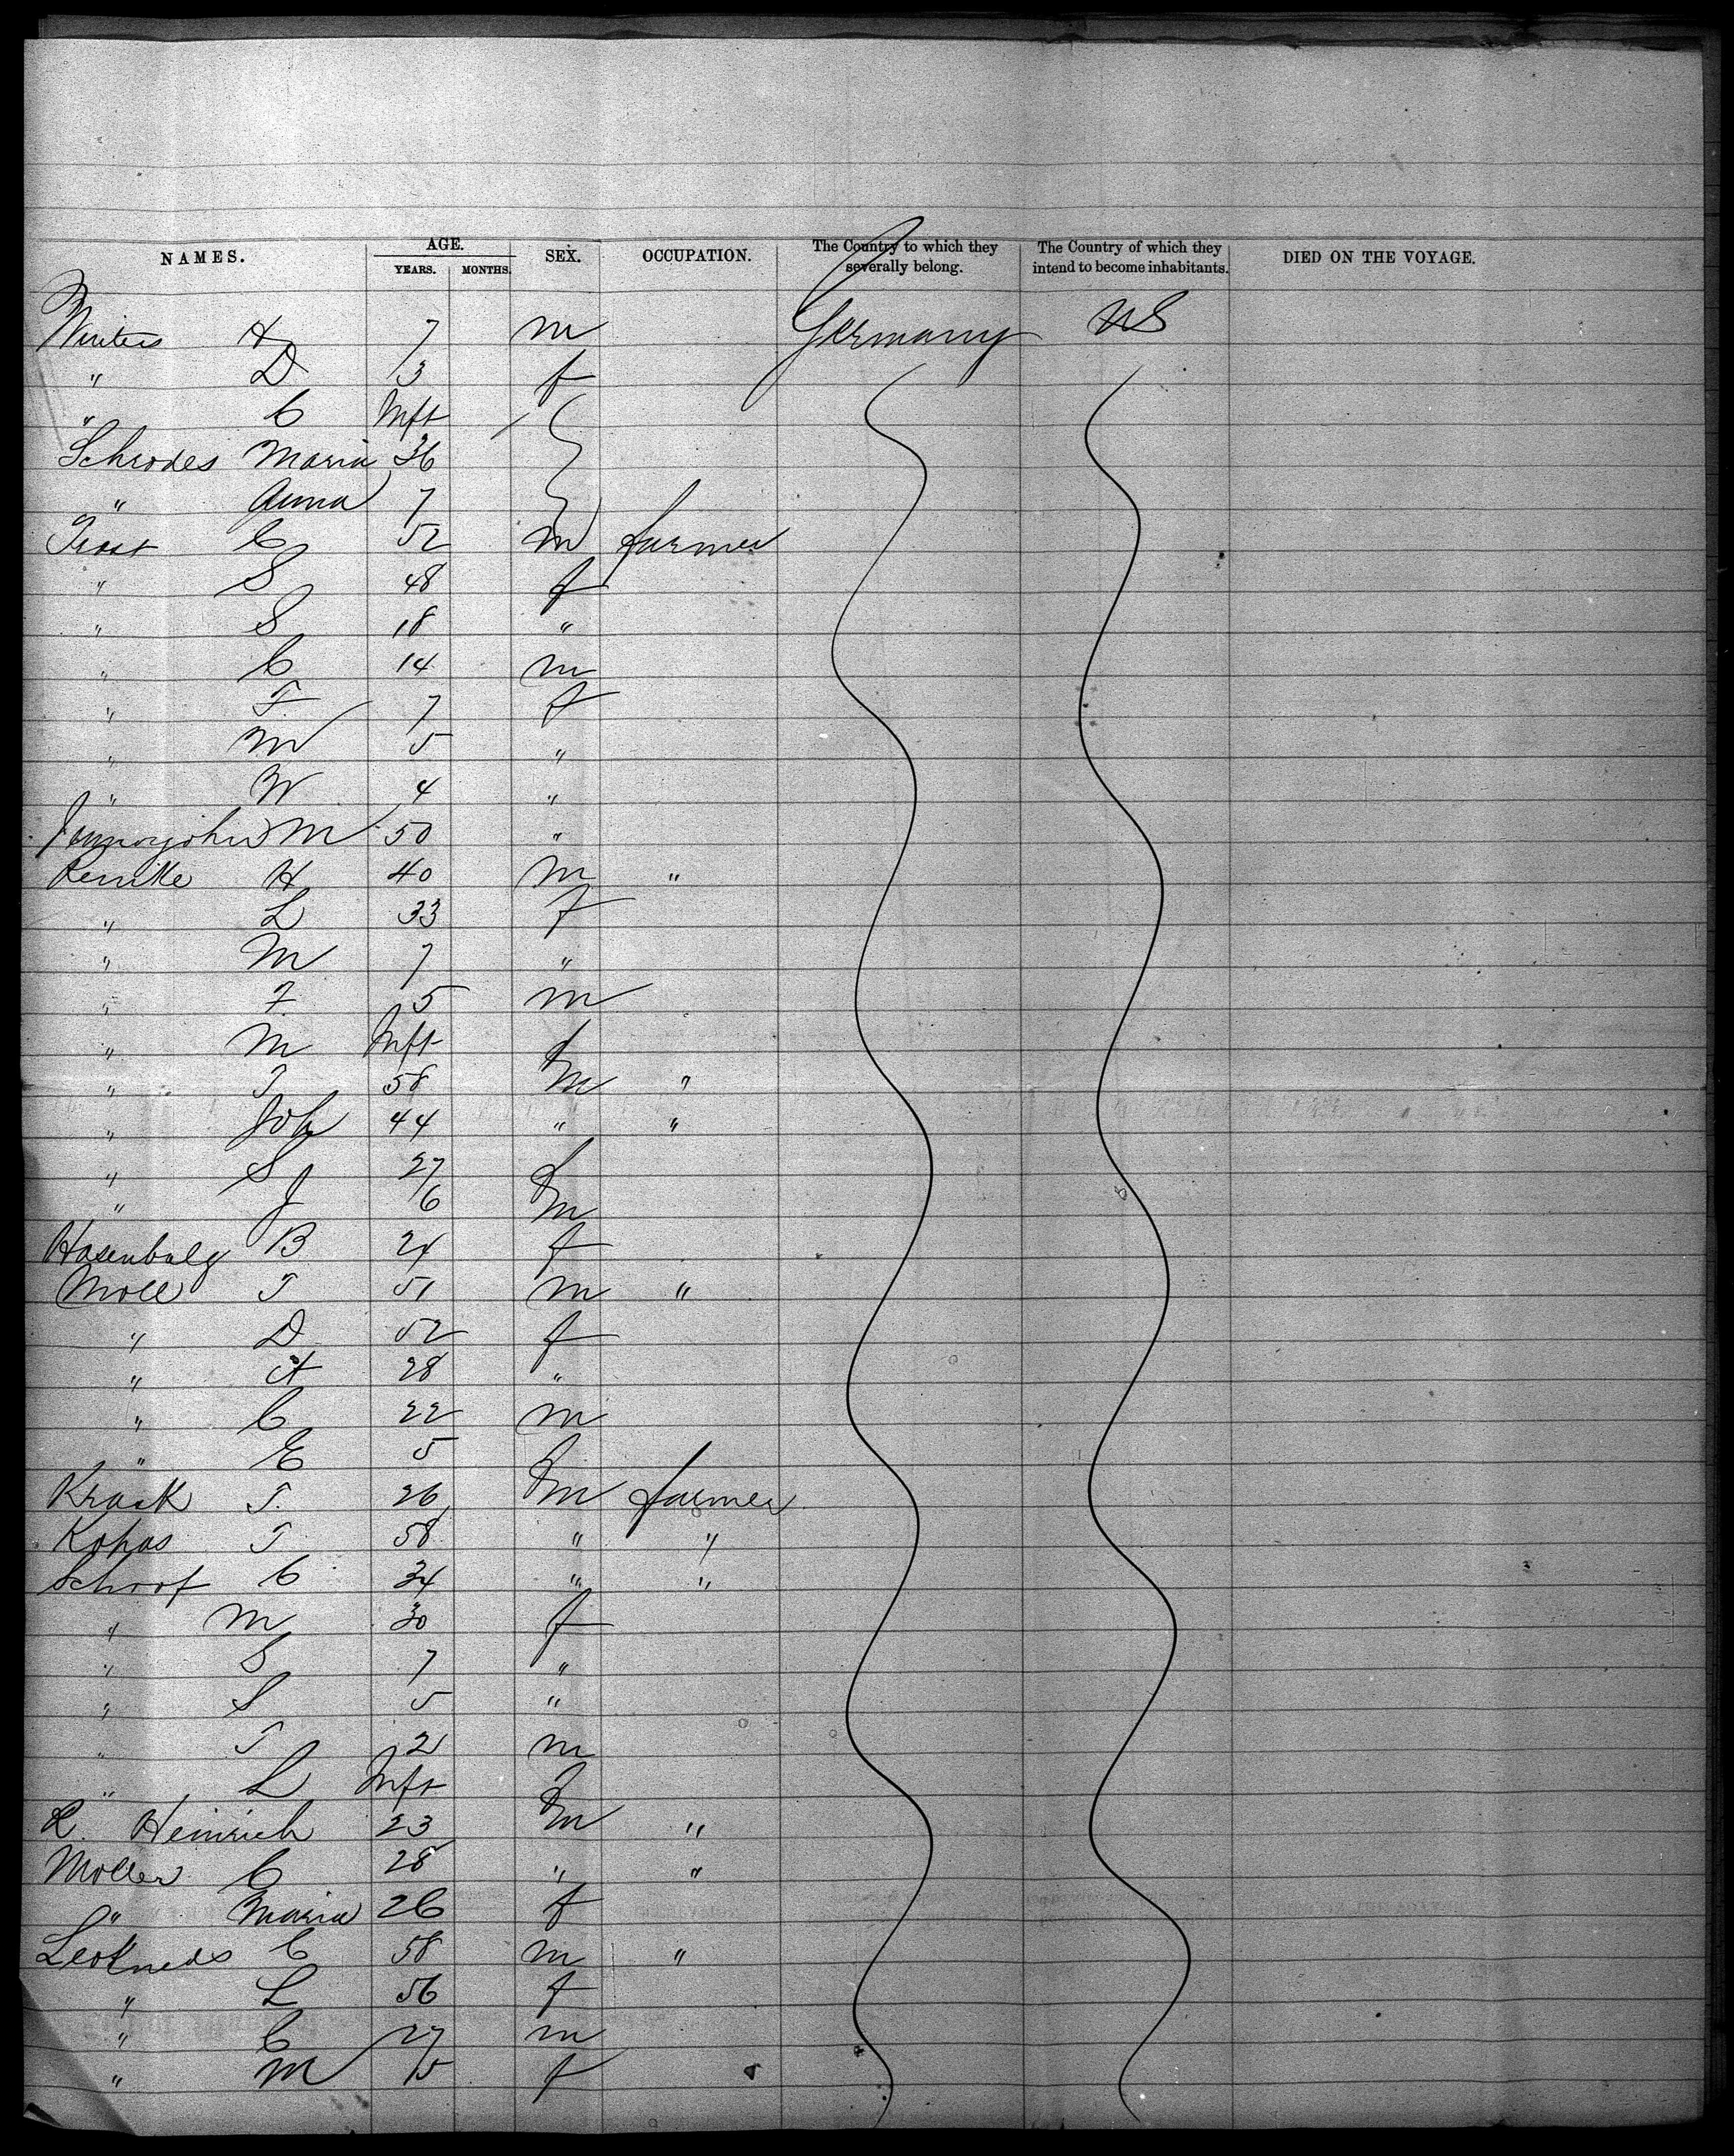 NAMES. AGE. YEARS. MONTHS. SEX. OCCUPATION. The Country to which they severally belong. The Country of which they intend to become inhabitants. DIED ON THE VOYAGE.
Winters H 7 m Germany US
" D 3 f
" C Inft
Schrodes Maria 36
" Anna 7
Trost C 52 m farmer
" S 48 f
" S 18 "
" C 14 m
" F 7 f
" M 5 "
" W 4 "
M 50 "
Renike H 40 m "
" L 33 f
" M 7 "
" F 5 m
" M Inft f
" T 58 m "
" Joh 44 " "
" S 27 f
" J 6 m
Hasenbalg B 24 f
Moll T 51 m "
" D 52 f
" A 28 "
" C 22 m
" E 5 f
Krack T. 26 m farmer
Kohas T 58 " "
Schoof C 34 " "
" M 30 f
" S 7 "
" S 5 "
" T 2 m
" L Inft f
R. Heinrich 23 m "
Moller C 28 " "
" Maria 26 f
C 58 m "
" L 56 f
" C 27 m
" M 15 f